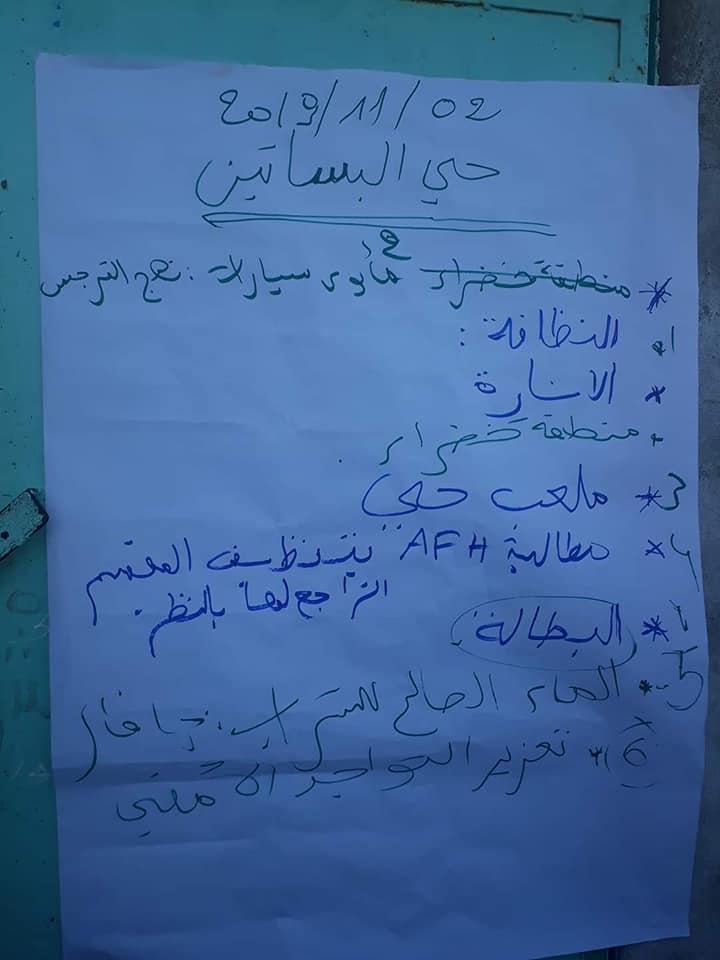 2019/11/02
حي البساتين
* منطقة خضراء مأوى سيارات : نهج النرجس
2
1. النظافة :
* الانارة
- منطقة خضراء .
3 * ملعب حي
4 * مطالبة AFH بتنظيف المقسم
الراجع لها بالنظر
* البطالة
5 - * الماء الصالح للشراب
6) * تعزيز التواجد الأمني